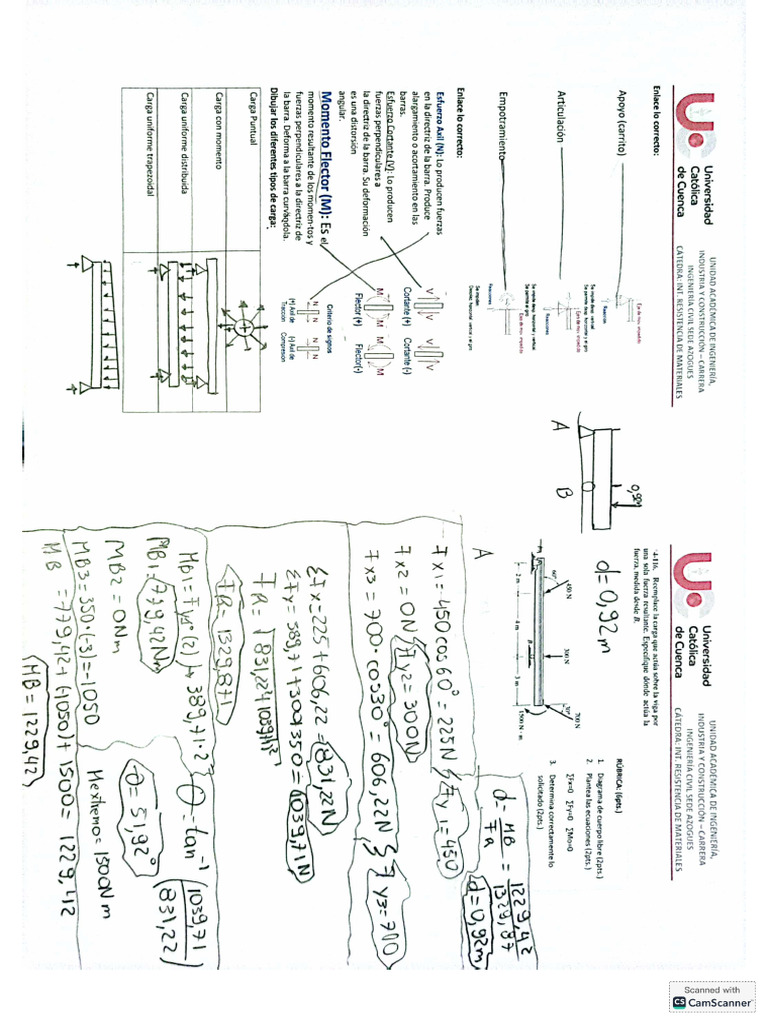 Universidad
Católica
de Cuenca
UNIDAD ACADÉMICA DE INGENIERÍA,
INDUSTRIA Y CONSTRUCCIÓN – CARRERA
INGENIERÍA CIVIL SEDE AZOGUES
CÁTEDRA: INT. RESISTENCIA DE MATERIALES
Enlace lo correcto:
Apoyo (carrito)
Reacción
Articulación
Reacciones
Empotramiento
Reacciones
Enlace lo correcto:
Esfuerzo Axil (N): Lo producen fuerzas
en la directriz de la barra. Produce
alargamiento o acortamiento en las
barras.
Esfuerzo Cortante (V): Lo producen
fuerzas perpendiculares a
la directriz de la barra. Su deformación
es una distorsión
angular.
Momento Flector (M): Es el
momento resultante de los momen-tos y
fuerzas perpendiculares a la directriz de
la barra. Deforma a la barra curvándola.
V V V V
Cortante (+) Cortante (-)
M M M M
Flector (+) Flector(-)
Criterio de signos
N N N N
(+) Axil de
Tracción
(-) Axil de
Compresión
Dibujar los diferentes tipos de carga:
Carga Puntual
Carga con momento
Carga uniforme distribuida
Carga uniforme trapezoidal
Universidad
Católica
de Cuenca
UNIDAD ACADÉMICA DE INGENIERÍA,
INDUSTRIA Y CONSTRUCCIÓN – CARRERA
INGENIERÍA CIVIL SEDE AZOGUES
CÁTEDRA: INT. RESISTENCIA DE MATERIALES
Reemplace la carga que actúa sobre la viga por
una sola fuerza resultante. Especifique dónde actúa la
fuerza, medida desde B.
RÚBRICA: (6pts.)
1. Diagrama de cuerpo libre (2pts.)
2. Plantea las ecuaciones (2pts.)
∑Fx=0 ∑Fy=0 ∑Mo=0
3. Determina correctamente lo
solicitado (2pts.)
0,92m
A B
d=0,92m
450 N
300 N
700 N
60°
30°
1500 N · m
2 m
4 m
3 m
A
B
A
d= MB/Fa = 1229,42/1329,87
d=0,92m
Fx1=450cos60°=225N
Fy1=450
Fx2=0N
Fy2=300N
Fx3=700·cos30°=606,22N
Fy3=700
∑Fx=225+606,22=831,22N
∑Fy=389,71+300+350=1039,71N
Fa=1329,871
MB1=779,42Nm
MB2=0Nm
MB3=350·(-3)=-1050
θ=tan⁻¹(1039,71/831,22)
θ=51,92°
Mextremo=1500Nm
MB =779,42+(-1050)+1500=1229,42
MB=1229,42
Scanned with
CS CamScanner